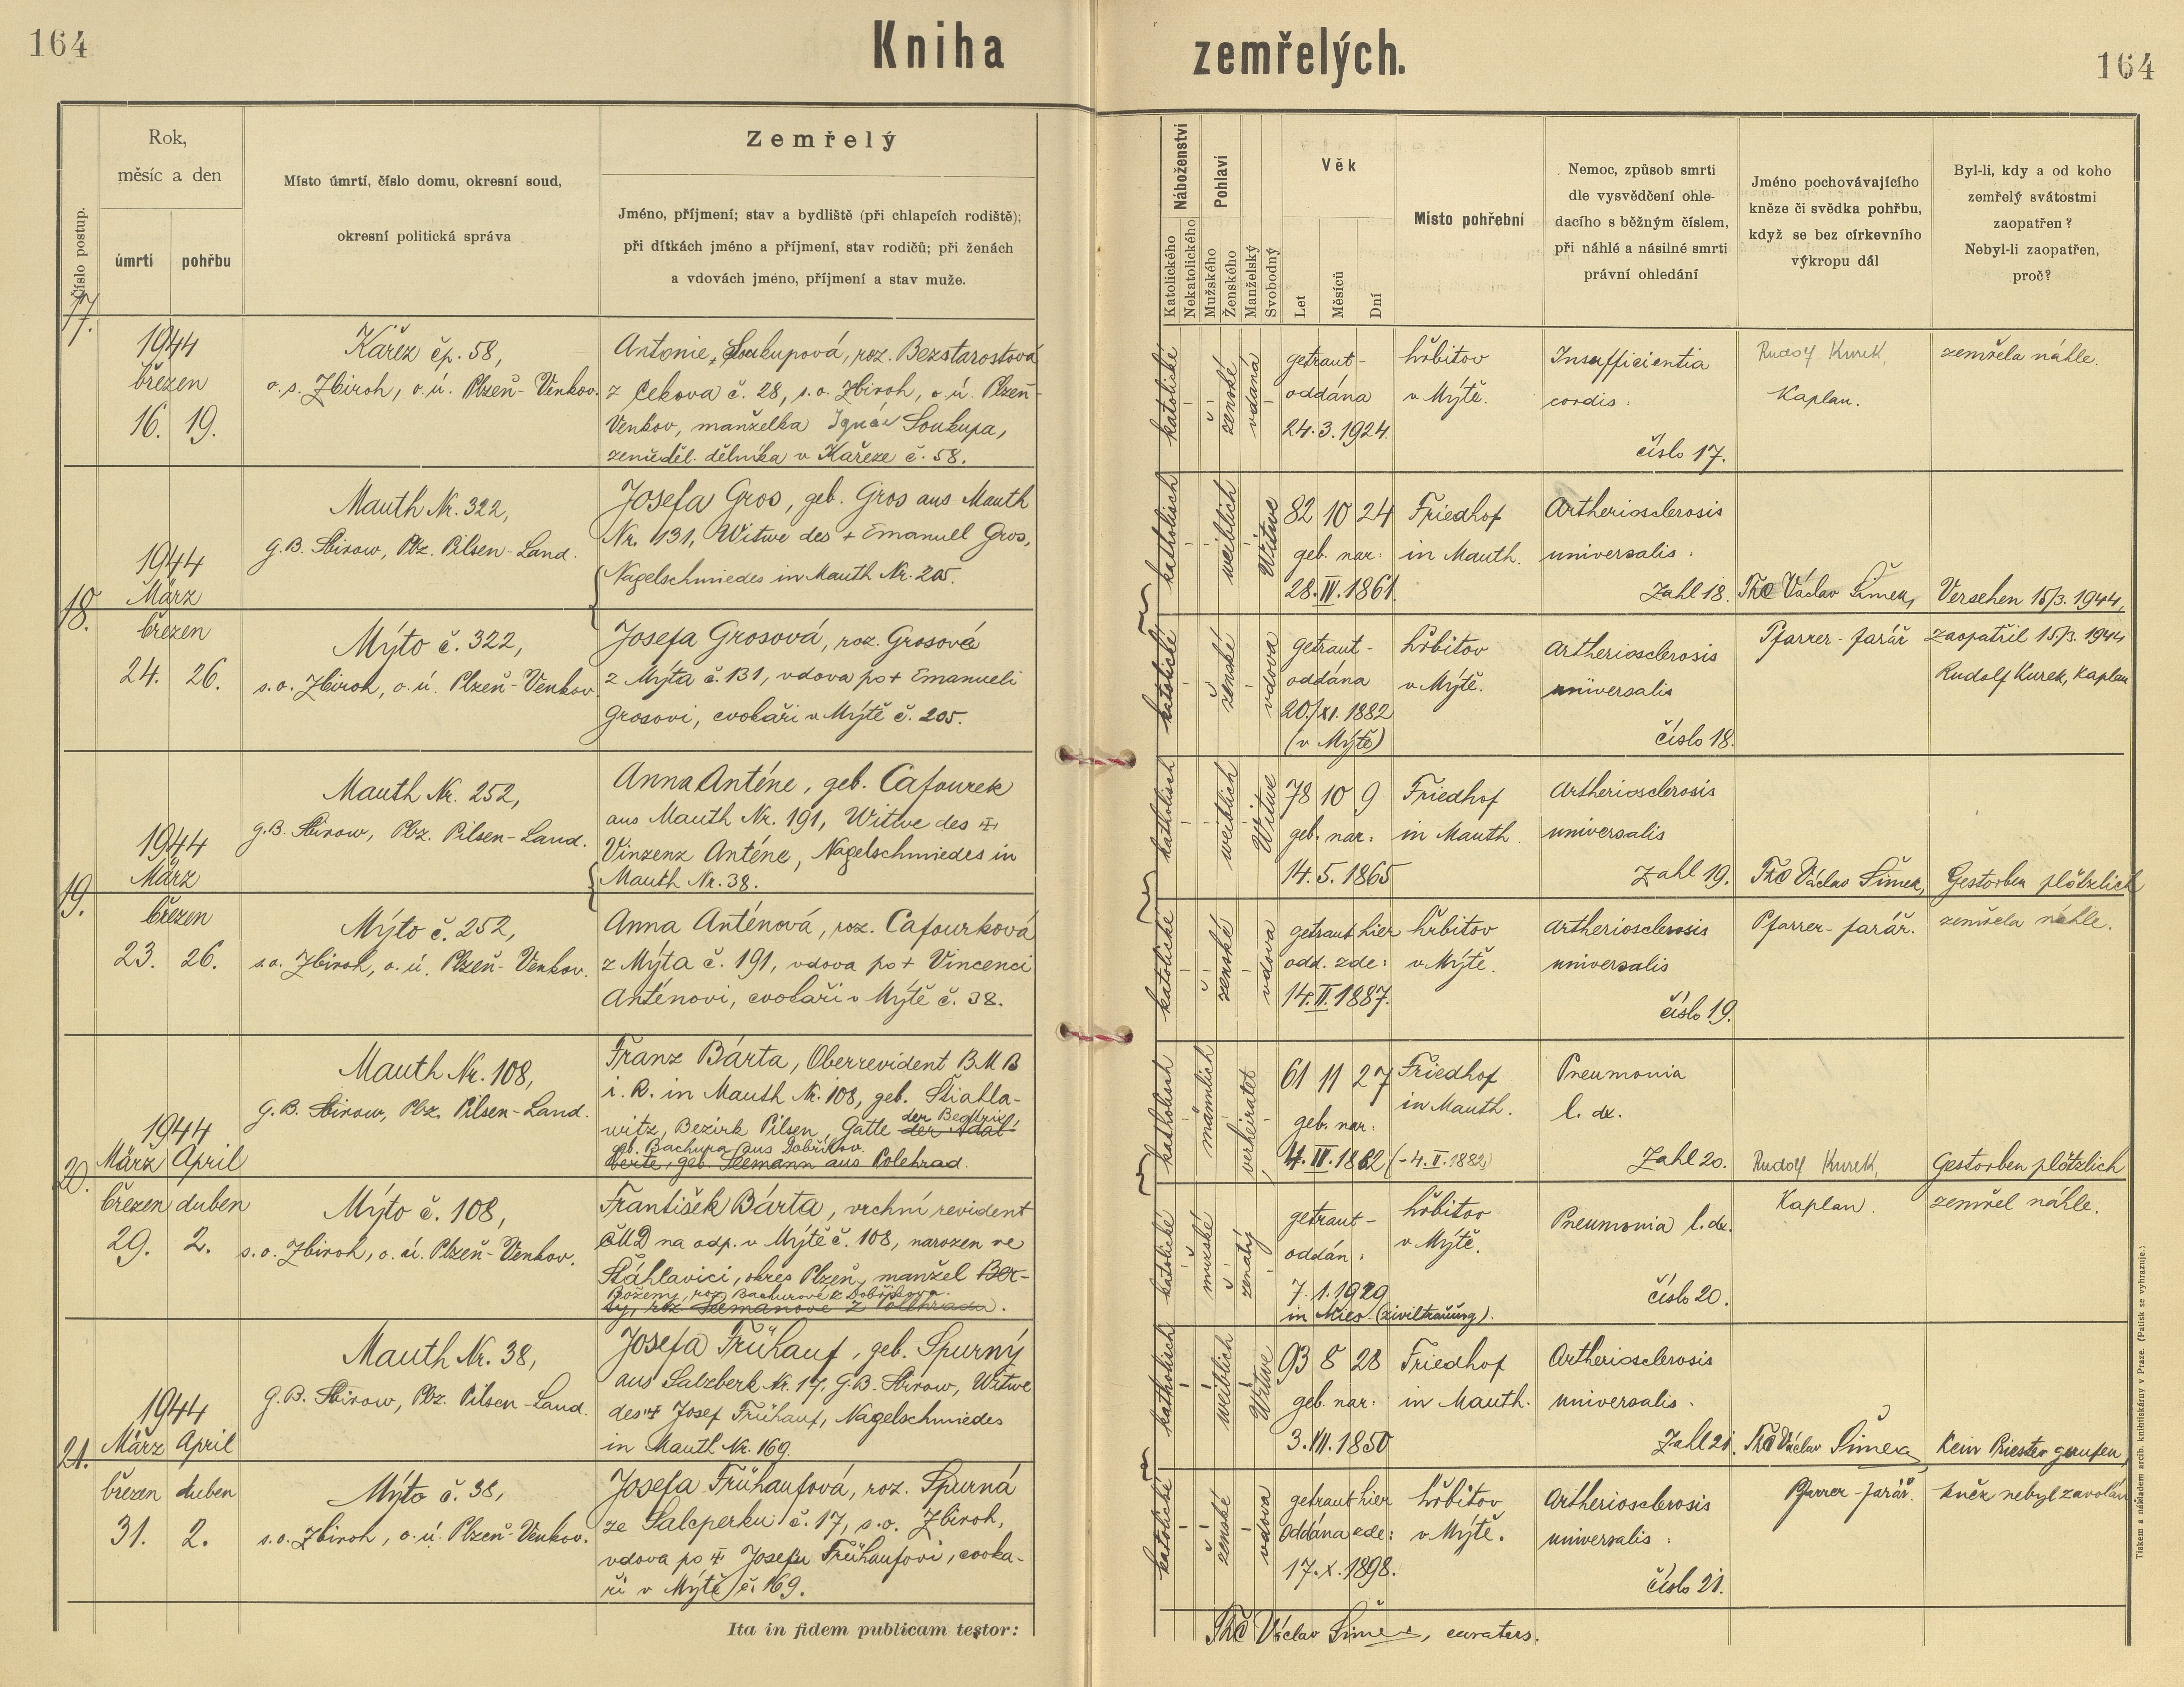 164
Kniha zemřelých.
164
Číslo postup.
Rok,
měsíc a den
úmrtí
pohřbu
Místo úmrtí, číslo domu, okresní soud,
okresní politická správa
Zemřelý
Jméno, příjmení; stav a bydliště (při chlapcích rodiště);
při dítkách jméno a příjmení, stav rodičů; při ženách
a vdovách jméno, příjmení a stav muže.
Náboženství
Katolického
Nekatolického
Pohlaví
Mužského
Ženského
Manželský
Svobodný
Věk
Let
Měsíců
Dní
Místo pohřební
Nemoc, způsob smrti
dle vysvědčení ohle-
dacího s běžným číslem,
při náhlé a násilné smrti
právní ohledání
Jméno pochovávajícího
kněze či svědka pohřbu,
když se bez církevního
výkropu dál
Byl-li, kdy a od koho
zemřelý svátostmi
zaopatřen?
Nebyl-li zaopatřen,
proč?
17.
1944
březen
16. 19.
Kařez čp. 58,
o. s. Zbiroh, o. ú. Plzeň-Venkov.
Antonie Soukupová, roz. Bezstarostová
z Cekova č. 28, s. o. Zbiroh, o. ú. Plzeň-
Venkov, manželka Ignáce Soukupa,
zeměděl. dělníka v Kařeze č. 58.
katolické
ženské
vdaná
getraut-
oddána
24. 3. 1924.
hřbitov
v Mýtě.
Insufficientia
cordis:
číslo 17.
Rudolf Kurek,
Kaplan.
zemřela náhle.
18.
1944
März
březen
24. 26.
Mauth Nr. 322,
G.B. Sbirow, Pbz. Pilsen-Land.
Josefa Gros, geb. Gros aus Mauth
Nr. 131, Witwe des + Emanuel Gros,
Nagelschmiedes in Mauth Nr. 205.
katholisch
weiblich
Witwe
82 10 24
geb. nar:
28. IV. 1861.
Friedhof
in Mauth.
Artheriosclerosis
universalis.
Zahl 18.
ThC Václav Šimek,
Pfarrer-farář
Versehen 15/3. 1944,
zaopatřil 15/3. 1944
Rudolf Kurek, Kaplan
Mýto č. 322,
s. o. Zbiroh, o. ú. Plzeň-Venkov.
Josefa Grosová, roz. Grosová
z Mýta č. 131, vdova po + Emanueli
Grosovi, cvokaři v Mýtě č. 205.
katolické
ženské
vdova
getraut-
oddána
20./XI. 1882
(v Mýtě)
hřbitov
v Mýtě.
Artheriosclerosis
universalis
číslo 18.
19.
1944
März
březen
23. 26.
Mauth Nr. 252,
G.B. Sbirow, Pbz. Pilsen-Land.
Anna Anténe, geb. Cafourek
aus Mauth Nr. 191, Witwe des +
Vinzenz Anténe, Nagelschmiedes in
Mauth Nr. 38.
katholisch
weiblich
Witwe
78 10 9
geb. nar:
14. 5. 1865
Friedhof
in Mauth.
Artheriosclerosis
universalis
Zahl 19.
ThC Václav Šimek,
Pfarrer-farář.
Gestorben plötzlich
zemřela náhle.
Mýto č. 252,
s. o. Zbiroh, o. ú. Plzeň-Venkov.
Anna Anténová, roz. Cafourková
z Mýta č. 191, vdova po + Vincenci
Anténovi, cvokaři v Mýtě č. 38.
katolické
ženské
vdova
getraut hier
odd. zde:
14. II. 1887.
hřbitov
v Mýtě.
Artheriosclerosis
universalis
číslo 19.
20.
1944
März April
březen duben
29. 2.
Mauth Nr. 108,
G.B. Sbirow, Pbz. Pilsen-Land.
Franz Bárta, Oberrevident BMB
i. R. in Mauth Nr. 108, geb. Stiahla-
witz, Bezirk Pilsen, Gatte der Adal-
der Beatrix
geb. Bachura aus Dobřikov.
berte, geb. Seemann aus Polehrad.
katholisch
männlich
verheiratet
61 11 27
geb. nar:
4. IV. 1882 (-4. II. 1882)
Friedhof
in Mauth.
Pneumonia
l. dx.
Zahl 20.
Rudolf Kurek,
Kaplan.
Gestorben plötzlich
zemřel náhle.
Mýto č. 108,
s. o. Zbiroh, o. ú. Plzeň-Venkov.
František Bárta, vrchní revident
ČMD na odp. v Mýtě č. 108, narozen ve
Šťáhlavici, okres Plzeň, manžel Ber-
Boženy, roz. Bachurové z Dobříkova.
ty, roz. Seemanové z Polehradu.
katolické
mužské
ženatý
getraut-
oddán:
7. 1. 1929
in Mies (Ziviltrauung).
hřbitov
v Mýtě.
Pneumonia l. dx.
číslo 20.
21.
1944
März April
březen duben
31. 2.
Mauth Nr. 38,
G.B. Sbirow, Pbz. Pilsen-Land.
Josefa Frühauf, geb. Spurný
aus Salzberk Nr. 17, G.B. Sbirow, Witwe
des + Josef Frühauf, Nagelschmiedes
in Mauth Nr. 169.
katholisch
weiblich
Witwe
93 8 28
geb. nar:
3. VII. 1850
Friedhof
in Mauth.
Artheriosclerosis
universalis.
Zahl 21.
ThC Václav Šimek
Pfarrer-farář.
Kein Priester gerufen,
kněz nebyl zavolán
Mýto č. 38,
s. o. Zbiroh, o. ú. Plzeň-Venkov.
Josefa Frühaufová, roz. Spurná
ze Salcperku č. 17, s. o. Zbiroh,
vdova po + Josefu Frühaufovi, cvoka-
ři v Mýtě č. 169.
katolické
ženské
vdova
getraut hier
oddána zde:
17. X. 1898.
hřbitov
v Mýtě.
Artheriosclerosis
universalis.
číslo 21.
Ita in fidem publicam testor:
ThC Václav Šimek, curatus.
Tiskem a nákladem arcib. knihtiskárny v Praze. (Patisk se vyhrazuje.)